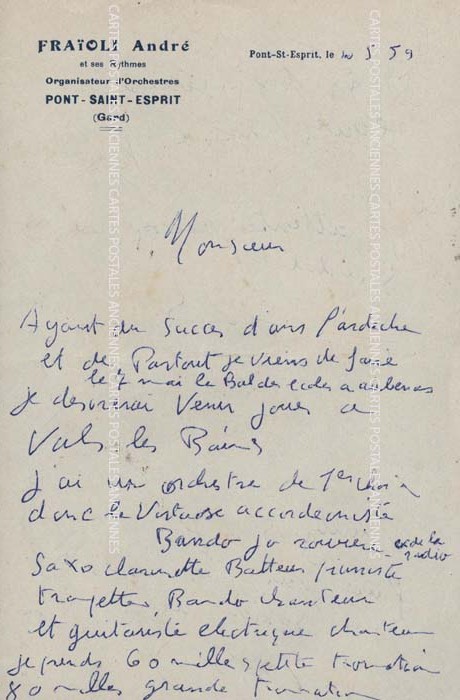 FRAÏOLI André
et ses Rythmes
Organisateur d'Orchestres
PONT-SAINT-ESPRIT
(Gard)
Pont-St-Esprit, le 10 5 59
Monsieur
Ayant du Succes dans l'ardeche
et de Partout je viens de faire
le 7 mai le Bal des ecoles a aubenas
je desirerai Venir jouer a
Vals les Bains
J'ai un orchestre de 1er choix
donc le Virtuose accordeoniste
Bando jo ex de la radio
Saxo clarinette Batteur pianiste
trompettes, Bando chanteur
et guitariste electrique chanteur
je prends 60 milles petite formation
80 milles grande formation
CARTES POSTALES ANCIENNES CARTES POSTALES ANCIENNES CARTES POSTALES ANCIENNES